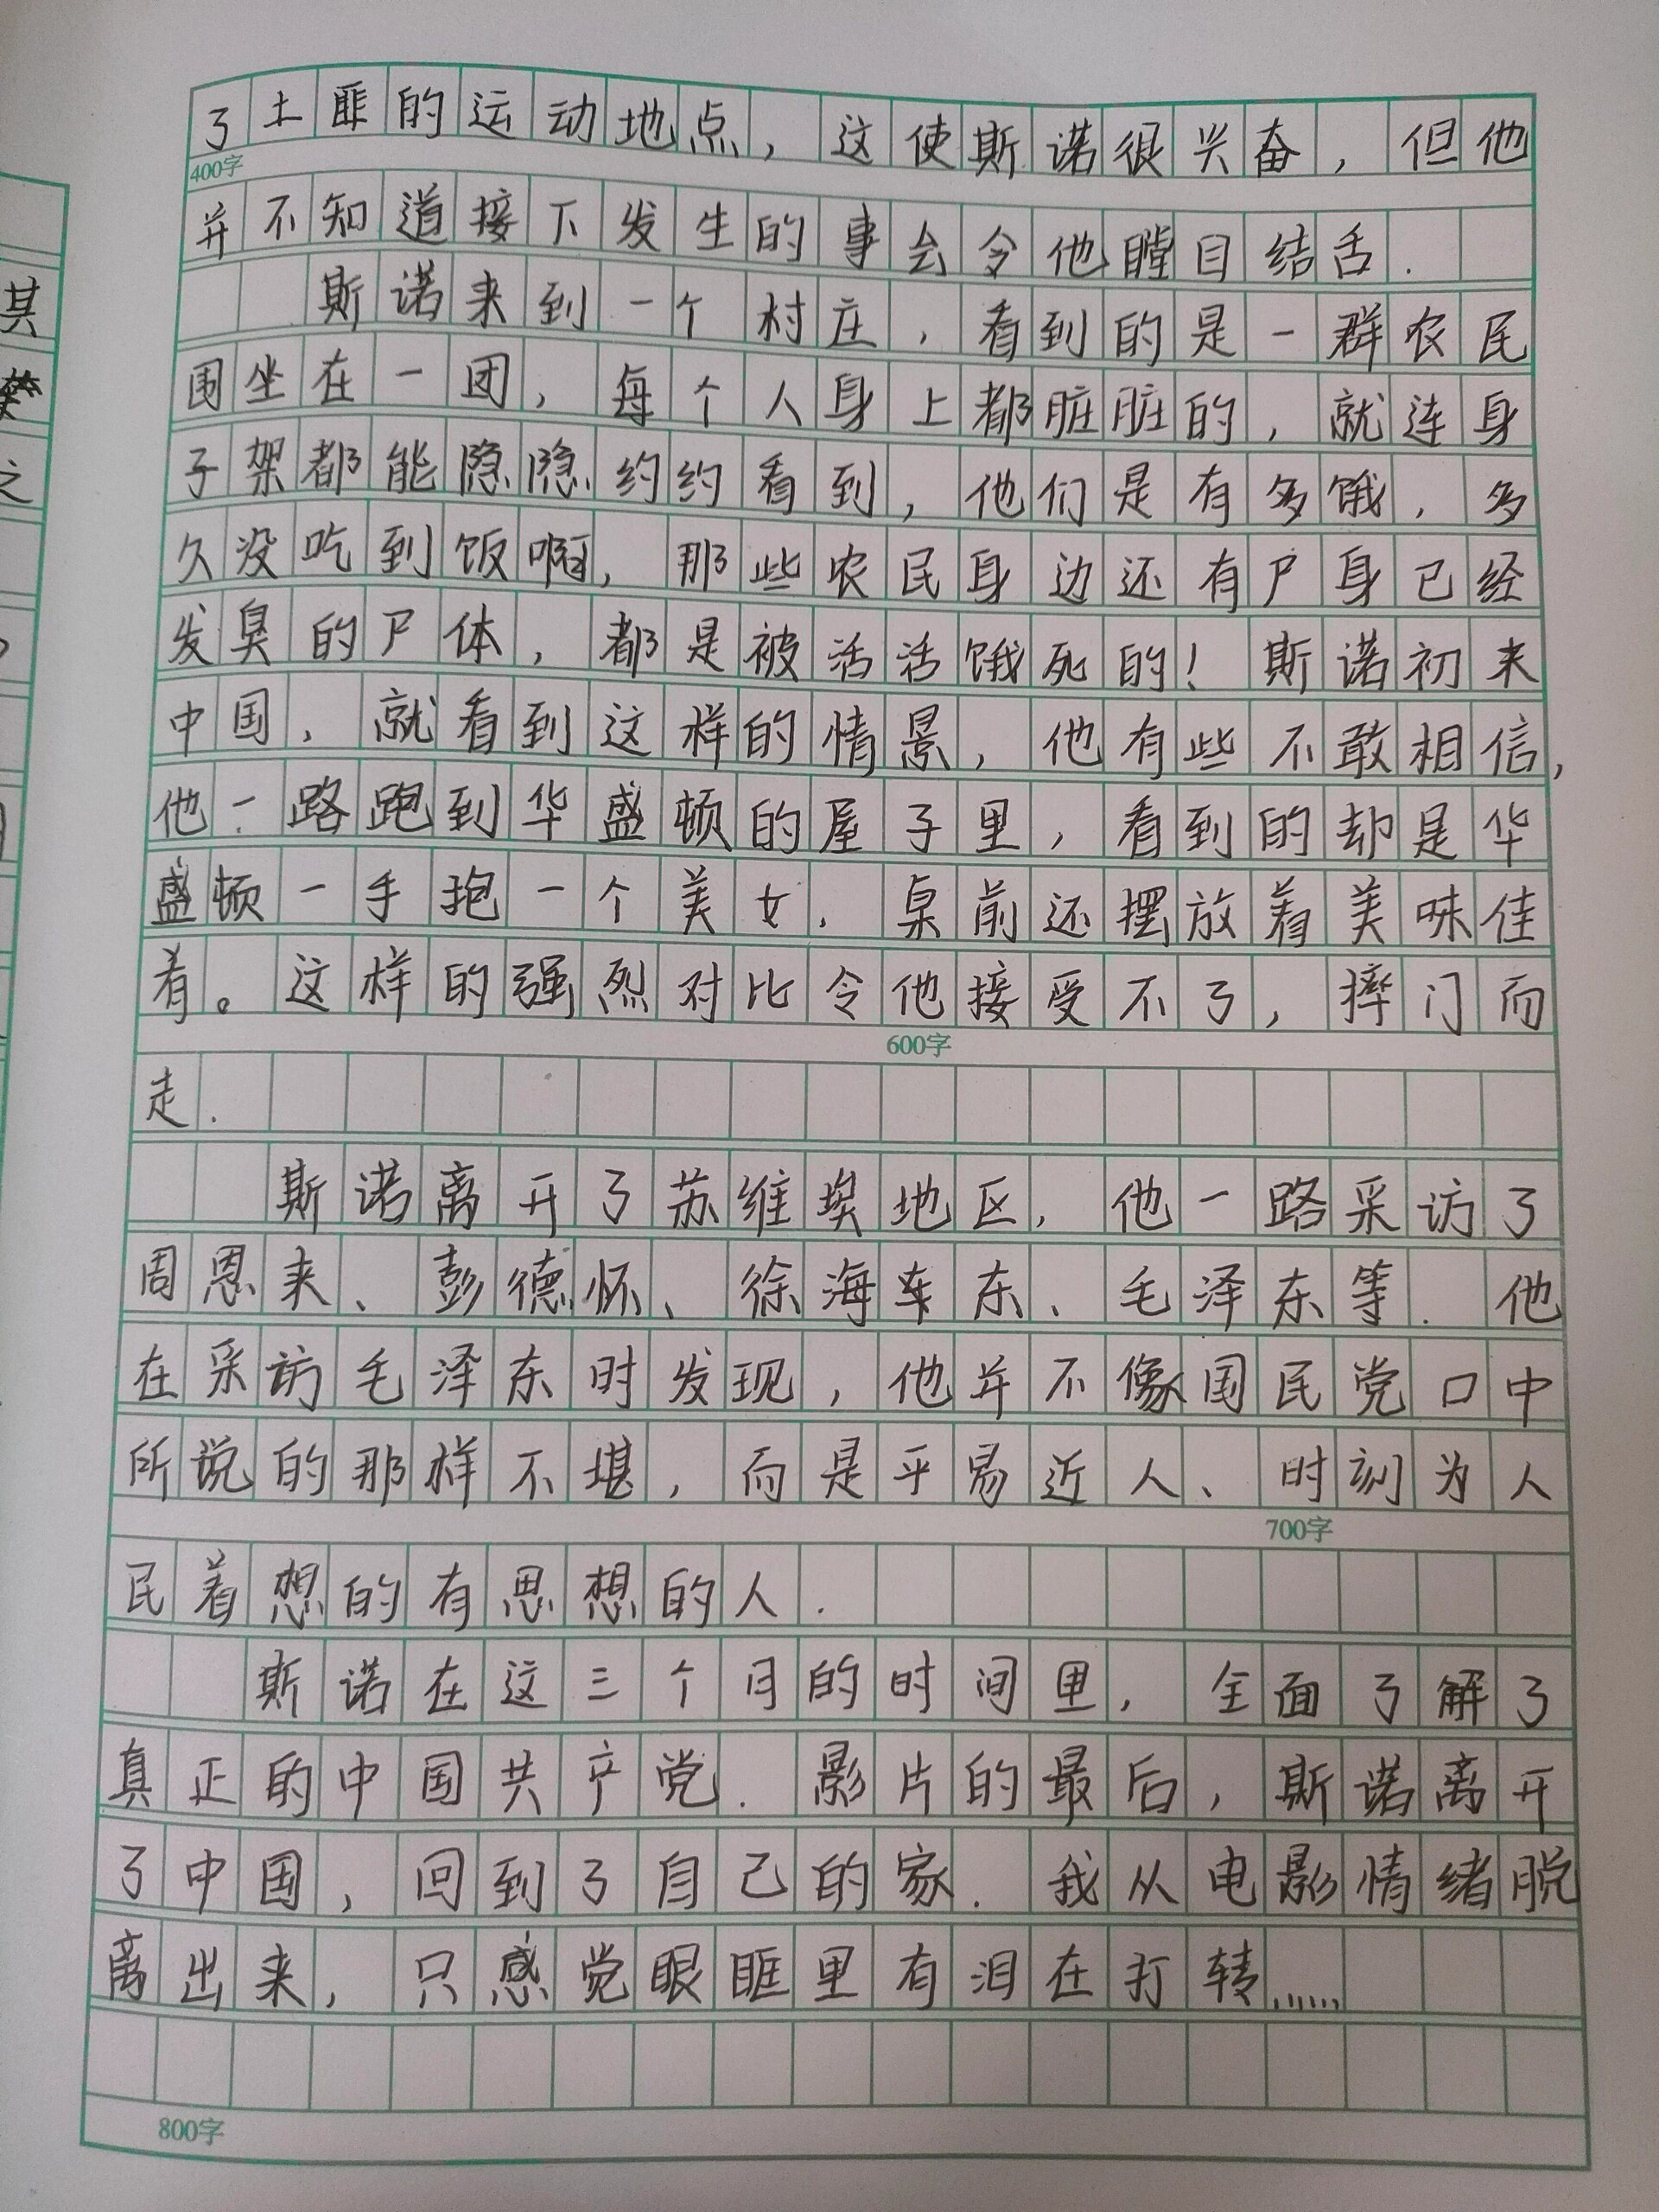 了土匪的运动地点，这使斯诺很兴奋，但他
400字
并不知道接下发生的事会令他瞠目结舌.
斯诺来到一个村庄，看到的是一群农民
围坐在一团，每个人身上都脏脏的，就连身
子架都能隐隐约约看到，他们是有多饿，多
久没吃到饭啊，那些农民身边还有尸身已经
发臭的尸体，都是被活活饿死的！斯诺初来
中国，就看到这样的情景，他有些不敢相信，
他一路跑到华盛顿的屋子里，看到的却是华
盛顿一手抱一个美女，桌前还摆放着美味佳
肴。这样的强烈对比令他接受不了，摔门而
600字
走.
斯诺离开了苏维埃地区，他一路采访了
周恩来、彭德怀、徐海东、毛泽东等.他
在采访毛泽东时发现，他并不像国民党口中
所说的那样不堪，而是平易近人、时刻为人
700字
民着想的有思想的人.
斯诺在这三个月的时间里，全面了解了
真正的中国共产党.影片的最后，斯诺离开
了中国，回到了自己的家.我从电影情绪脱
离出来，只感觉眼眶里有泪在打转......
800字
其
之